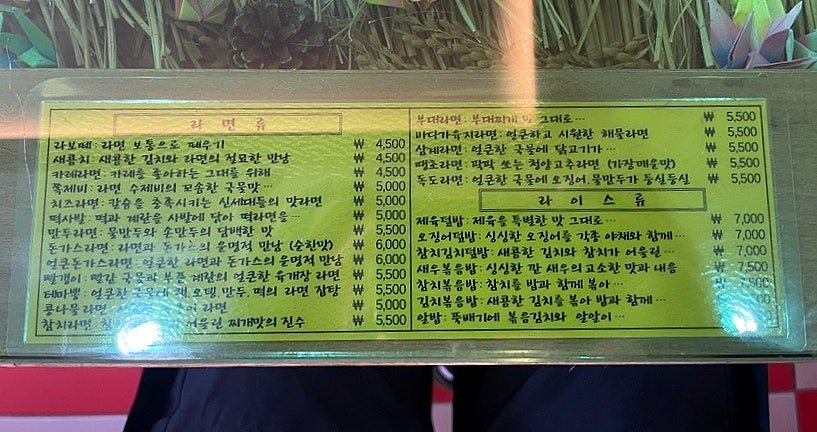 라 면 류
라보떼: 라면 보통으로 떼우기 ₩ 4,500
새콤치: 새콤한 김치와 라면의 절묘한 만남 ₩ 4,500
카레라면: 카레를 좋아하는 그대를 위해 ₩ 4,500
쫄제비: 라면 수제비의 꼬송한 국물맛… ₩ 5,000
치즈라면: 칼슘을 충족시키는 신세대들의 맛라면 ₩ 5,000
떡사발: 떡과 계란을 사발에 담아 떡라면을… ₩ 5,000
만두라면: 물만두와 손만두의 담백한 맛 ₩ 5,500
돈가스라면: 라면과 돈가스의 운명적 만남 (순한맛) ₩ 6,000
얼큰돈가스라면: 얼큰한 라면과 돈가스의 운명적 만남 ₩ 6,000
빨갱이: 빨간 국물과 푸픈 계란의 얼큰한 육개장 라면 ₩ 5,500
테마뽕: 얼큰한 국물에 햄, 오뎅, 만두, 떡의 라면 잡탕 ₩ 5,500
콩나물라면 라면 ₩ 5,000
참치라면 어울린 찌개맛의 진수 ₩ 5,500
부대라면: 부대찌개 맛 그대로… ₩ 5,500
바다가육지라면: 얼큰하고 시원한 해물라면 ₩ 5,500
삼계라면: 얼큰한 국물에 닭고기가… ₩ 5,500
땡초라면: 팍팍 쏘는 청양고추라면 (가장매운맛) ₩ 5,500
독도라면: 얼큰한 국물에 오징어, 물만두가 둥실둥실 ₩ 5,500
라 이 스 류
제육덮밥: 제육을 특별한 맛 그대로… ₩ 7,000
오징어덮밥: 싱싱한 오징어를 각종 야채와 함께… ₩ 7,000
참치김치덮밥: 새콤한 김치와 참치가 어울린… ₩ 7,000
새우볶음밥: 싱싱한 깐 새우의 고소한 맛과 내음 ₩ 7,500
참치볶음밥: 참치를 밥과 함께 볶아… ₩ 7,500
김치볶음밥: 새콤한 김치를 볶아 밥과 함께…
알밥: 뚝배기에 볶음김치와 알알이…